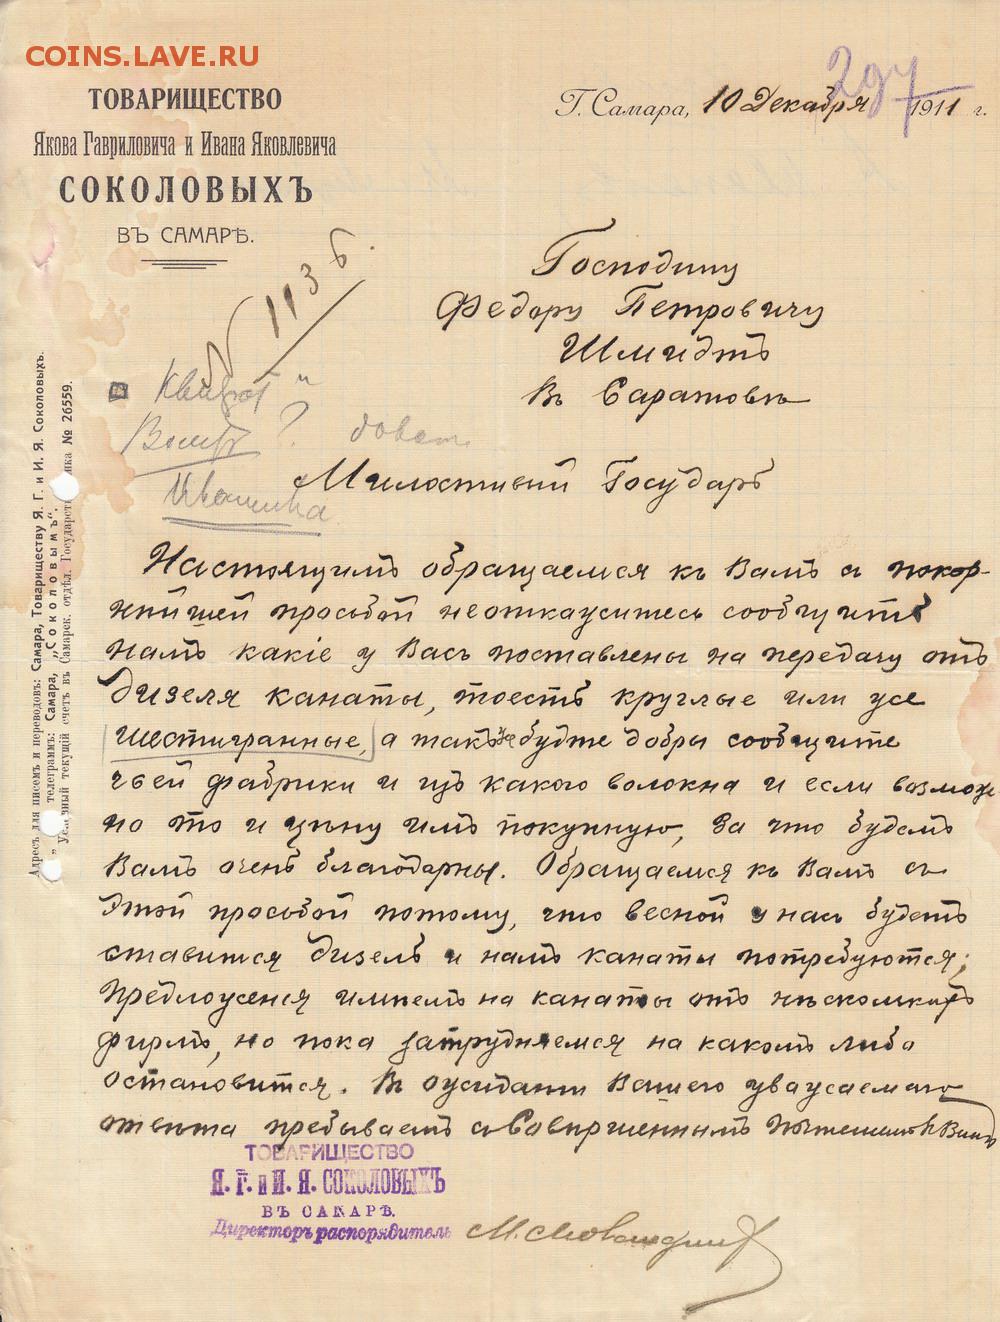 COINS.LAVE.RU
ТОВАРИЩЕСТВО
Якова Гавриловича и Ивана Яковлевича
СОКОЛОВЫХЪ
ВЪ САМАРѢ.
Г. Самара, 10 Декабря 1911 г.
297
1136.
Господину
Федору Петровичу
Шмидтъ
Въ Саратовѣ
Ивашива
Милостивый Государь
Настоящимъ обращаемся къ Вамъ съ покор-
нѣйшей просьбой неоткажитесь сообщить
намъ какіе у Васъ поставлены на передачу отъ
Дизеля канаты, тоесть круглые или же
шестигранные, а такъ же будте добры сообщите
чьей фабрики и изъ какого волокна и если возмож-
но то и цѣну имъ покупную, за что будемъ
Вамъ очень благодарны. Обращаемся къ Вамъ съ
этой просьбой потому, что весной у насъ будетъ
ставится дизель и намъ канаты потребуются;
Предложенія имѣемъ на канаты отъ нѣсколькихъ
фирмъ, но пока затрудняемся на какомъ либо
остановится. Въ ожиданіи Вашего уважаемаго
отвѣта пребываемъ съ Совершеннымъ Почтеніемъ къ Вамъ
ТОВАРИЩЕСТВО
Я. Г. и И. Я. СОКОЛОВЫХЪ
ВЪ САМАРѢ.
Директоръ распорядитель
Адресъ для писемъ и переводовъ: Самара, Товариществу Я. Г. и И. Я. Соколовыхъ.
" телеграммъ: Самара, „Соколовымъ".
текущій счетъ въ Самарск. отдѣл. Государств. № 26559.